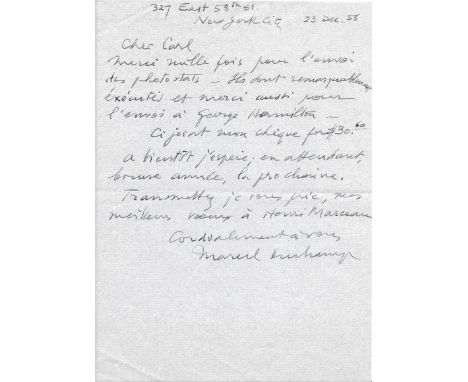 327 East 58th St.
New York City 23 Dec. 58
Cher Carl
merci mille fois pour l'envoi
des photostats – Ils sont remarquablement
éxécutés et merci aussi pour
l'envoi à George Hamilton –
Ci joint mon chèque pour $30.60
A bientôt j'espère; en attendant,
bonne année, la prochaine.
Transmettez je vous prie, mes
meilleurs vœux à Henri Marceau
Cordialement à vous
Marcel Duchamp